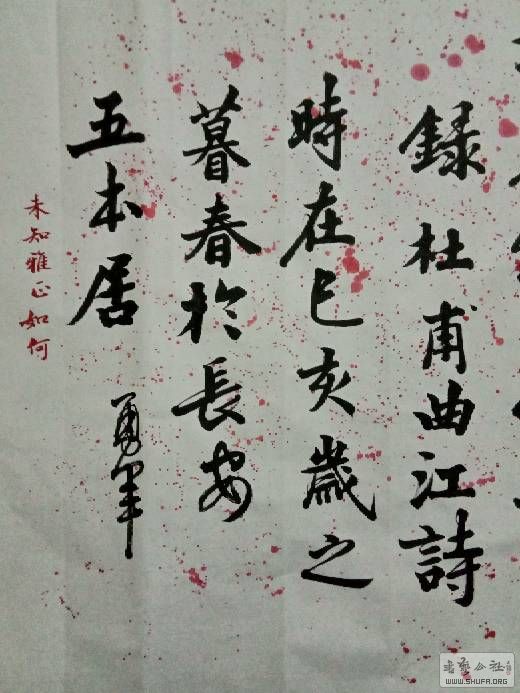 録杜甫曲江詩
時在己亥歲之
暮春於長安
五本居 勇軍
未知雅正如何
WWW.SHUFA.ORG